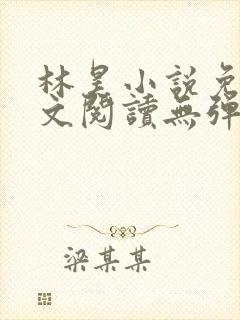 林昊小說免
文閱讀無彈
梁某某